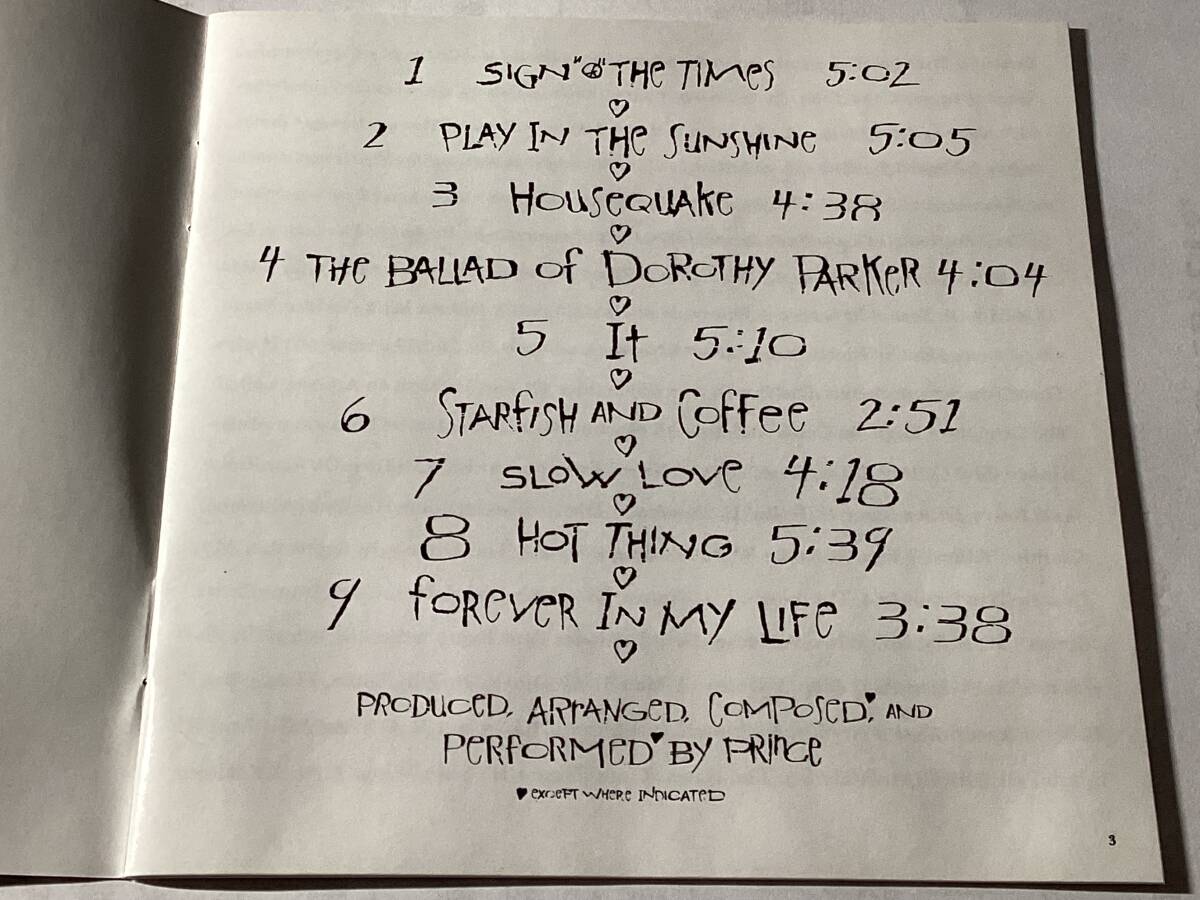 1 SIGN "☮" THE TIMES 5:02
♡
2 PLAY IN THE SUNSHINE 5:05
♡
3 HOUSEQUAKE 4:38
♡
4 THE BALLAD Of DOROTHY PARKER 4:04
♡
5 It 5:10
♡
6 STARfISH AND COffee 2:51
♡
7 SLOW LOVE 4:18
♡
8 HOT THING 5:39
♡
9 fOREVER IN MY LIFE 3:38
♡
PRODUCED, ARRANGED, COMPOSED♥, AND
PERFORMED♥ BY PRINCE
♥ EXCEPT WHERE INDICATED
3